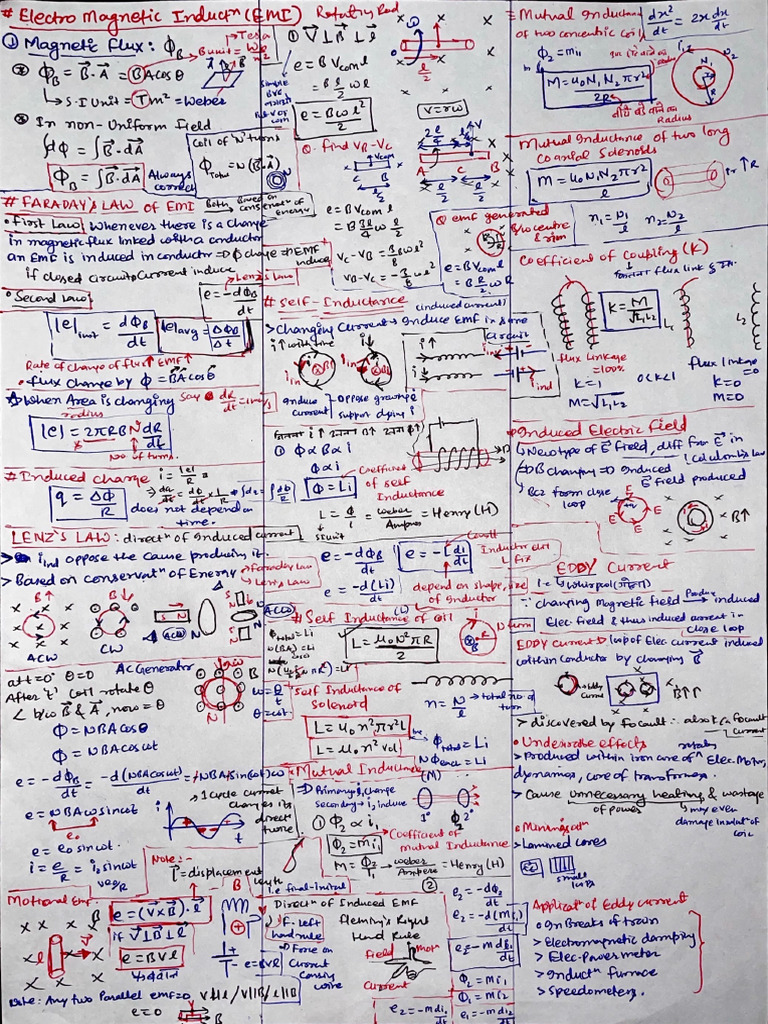 # Electro Magnetic Inductⁿ (EMI)
① Magnetic flux: Φ_B
Φ_B = B⃗·A⃗ = BAcosθ
S.I Unit = Tm² = Weber
In non-Uniform field
∫dΦ = ∫B⃗·dA⃗
Φ_B = ∫B⃗·dA⃗ Always correct
Coil of 'N' turns
Φ_Total = N(B⃗·A⃗)
# FARADAY'S LAW of EMI Both Based on conservatⁿ of Energy
• First Law Whenever there is a change
in magnetic flux linked with a conductor
an EMF is induced in conductor ⇒ Φ change ⇒ EMF induce
if closed circuit ⇒ current induce
Lenz's Law
• Second Law
e = -dΦ_B/dt
|e|inst = dΦ_B/dt
|e|avg = ΔΦ_B/Δt
Rate of change of flux↑ EMF↑
• flux change by Φ = B⃗A⃗cosθ
When Area is changing Say dR/dt = 1m/s
radius
|e| = 2πRBN dR/dt
No of turns.
# Induced charge i = |e|/R
q = ΔΦ/R
does not depend on time.
LENZ'S LAW: directⁿ of Induced current
> i ind oppose the cause producing it.
> Based on conservatⁿ of Energy
Faraday Law
Lenz's Law
B↑ B↓
ACW CW ACW ACW
at t=0 θ=0 AC Generator
After 't' coil rotate θ
∠ b/w B⃗ & A⃗, now = θ
ω = θ/t
θ = ωt
Φ = NBAcosθ
Φ = NBAcosωt
e = -dΦ_B/dt = -d(NBAcosωt)/dt = -NBA(-sinωt)ω
e = NBAω sinωt
e₀
1 cycle current changes its directⁿ twice
e = e₀ sinωt.
i = e/R = i₀ sinωt
Note:-
l⃗ = displacement
i.e final-initial
Motional Emf
e = (V⃗×B⃗)·l⃗
if V⃗⊥B⃗⊥l⃗
e = BVl
Note: Any two Parallel emf=0 V||l / V||B / l||B
e=0
Rotating Rod
① V⃗⊥B⃗⊥l⃗
e = B Vcom l
= B l/2 ωl
e = Bωl²/2
V = rω
Q. find V_B-V_C
e = B Vcom l
= B 3l/4 ω l/2
V_C - V_B = 3/8 Bωl²
V_B - V_C = -3/8 Bωl²
Q emf generated b/w centre & rim
e = B Vcom l
= B R/2 ω R
# Self-Inductance (induced current)
> Changing Current → Induce Emf in same circuit
i↑ with time i↓
Induce current
Oppose growing i
support dying i
① Φ ∝ B ∝ i
Φ ∝ i
Φ = Li
Coefficient of self Inductance
L = Φ/i = weber/Ampere = Henry (H)
SI unit
e = -dΦ_B/dt
e = -L di/dt
Inductor coil L fix
e = -d(Li)/dt
depend on shape, size of Inductor
# Self Inductance of Coil
Φtotal = Li
N(BA) = Li
L = μ₀N²πR/2
N turn
Self Inductance of Solenoid
n = N/l → total no. of turn
L = μ₀n²πr²l
L = μ₀n² vol
Φtotal = Li
NΦeach = Li
# Mutual Inductance (M)
⇒ Primary i₁ change
Secondary → i₂ induce
① Φ₂ ∝ i₁
Φ₂ = mi₁
Coefficient of mutual Inductance
M = Φ₂/i₁ → weber/Ampere = Henry (H)
Directⁿ of Induced EMF
F-left hand rule
Fleming's Right Hand Rule
Force on current carrying wire
Field Motⁿ
Current
e = BVl
②
e₂ = -dΦ₂/dt
e₂ = -d(mi₁)/dt
e₂ = -m di₁/dt
Φ₂ = mi₁
Φ₁ = mi₂
e₂ = -m di₁/dt
e₁ = -m di₂/dt
= Mutual Inductance of two concentric coil
dx²/dt = 2x dx/dt
Φ₂ = mi₁
M = μ₀N₁N₂πr²/2R
Radius
Mutual Inductance of two long Coaxial Solenoids
M = μ₀N₁N₂πr²/l
n₁ = N₁/l n₂ = N₂/l
Coefficient of Coupling (K)
K = M/√L₁L₂
flux linkage = 100%
K = 1
M = √L₁L₂
0<K<1
flux linkage = 0
K = 0
M = 0
• Induced Electric Field
New type of E⃗ field, diff from E⃗ in Coulomb's law
⇒ B changing ⇒ Induced E⃗ field produced
Bcz form close loop
B↑
EDDY Current
i.e. Whirlpool
∵ changing Magnetic field → Produce induced
Elec field & thus induced current in close loop
EDDY current ⇒ loop of Elec current induced
within conductor by changing B⃗
Eddy current
B↑
> discovered by Focault ∴ also k/a Focault current
• Undesirable effects
> Produced within iron core of Elec. Motor,
dynamos, core of transformer.
> Cause unnecessary heating & wastage of power
may even damage insulatⁿ of coil
• Minimisatⁿ
> Laminated cores
small loops
Applicatⁿ of Eddy current
• In Breaks of train
> Electromagnetic damping
> Elec-Power meter
> Inductⁿ furnace
> Speedometers.